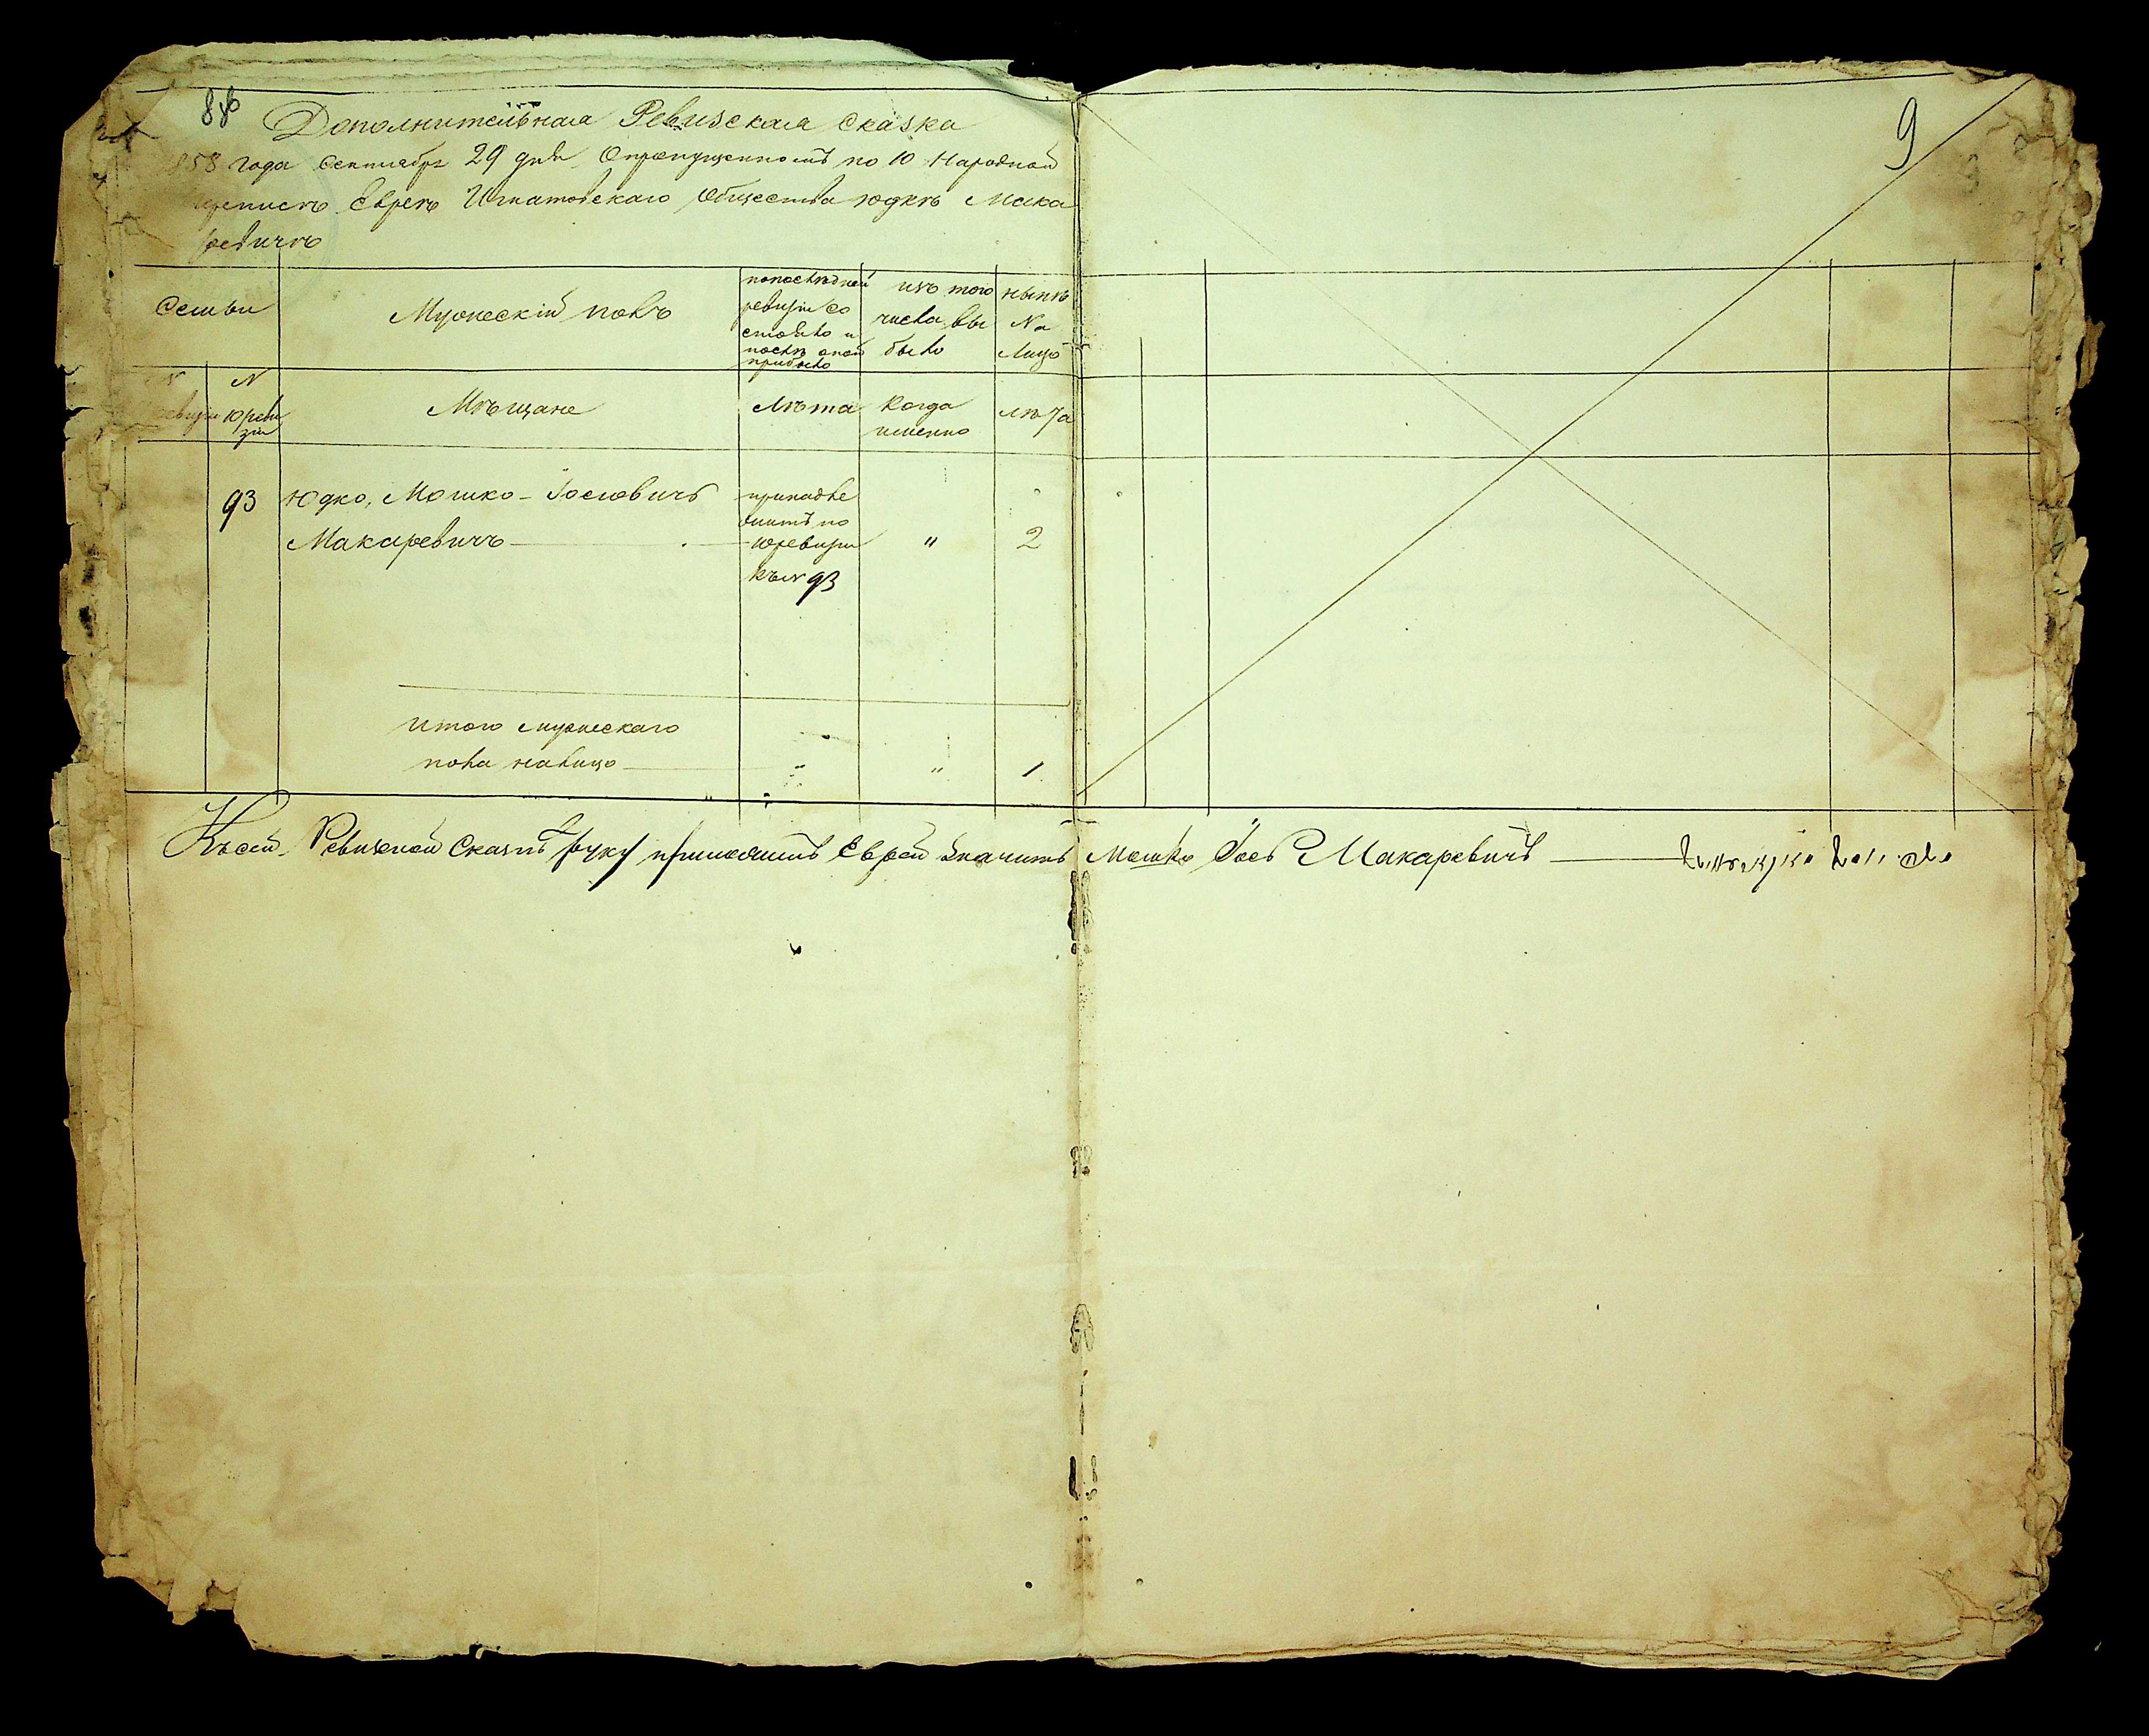 8
9
Дополнительная Ревизская Сказка
858 года Сентября 29 дня О пропущенномъ по 10 Народной
переписи Еврея Игнатовского Общества Юдкѣ Мака
ревичѣ
Семьи
Мужескій полъ
по последней ревизіи состояло и послѣ оной прибыло
изъ того числа выбыло
нынѣ на лицо
№ ревизіи
№ 10 ревизіи
Мѣщане
Лѣта
Когда именно
лѣта
93 Юдко, Мошко-Іосіовичъ принадле
житъ по
Макаревичъ — 10 ревизіи " 2
къ № 93
Итого мужескаго
пола налицо — " " 1
Къ сей Ревизской Сказкѣ руку приложилъ Еврей Значитъ Мошко Іось Макаревичъ —